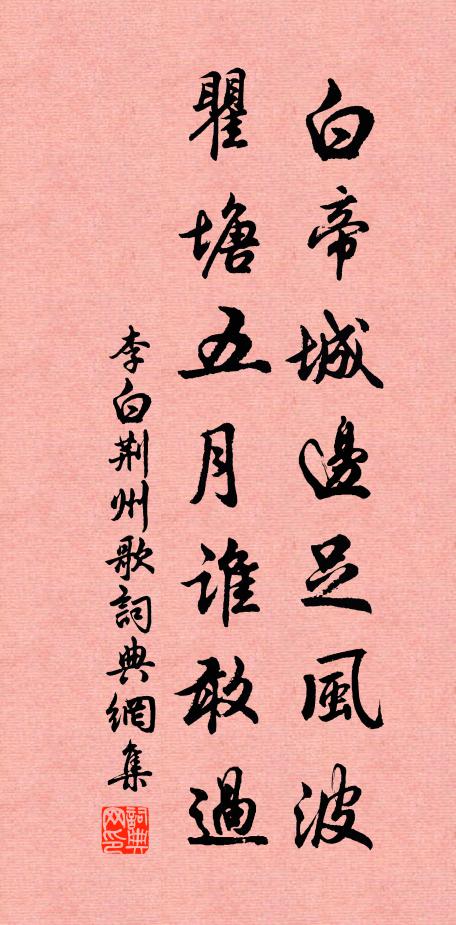 白帝城邊足風波
瞿塘五月誰敢過
李白荆州歌詞典網集
詞典网印